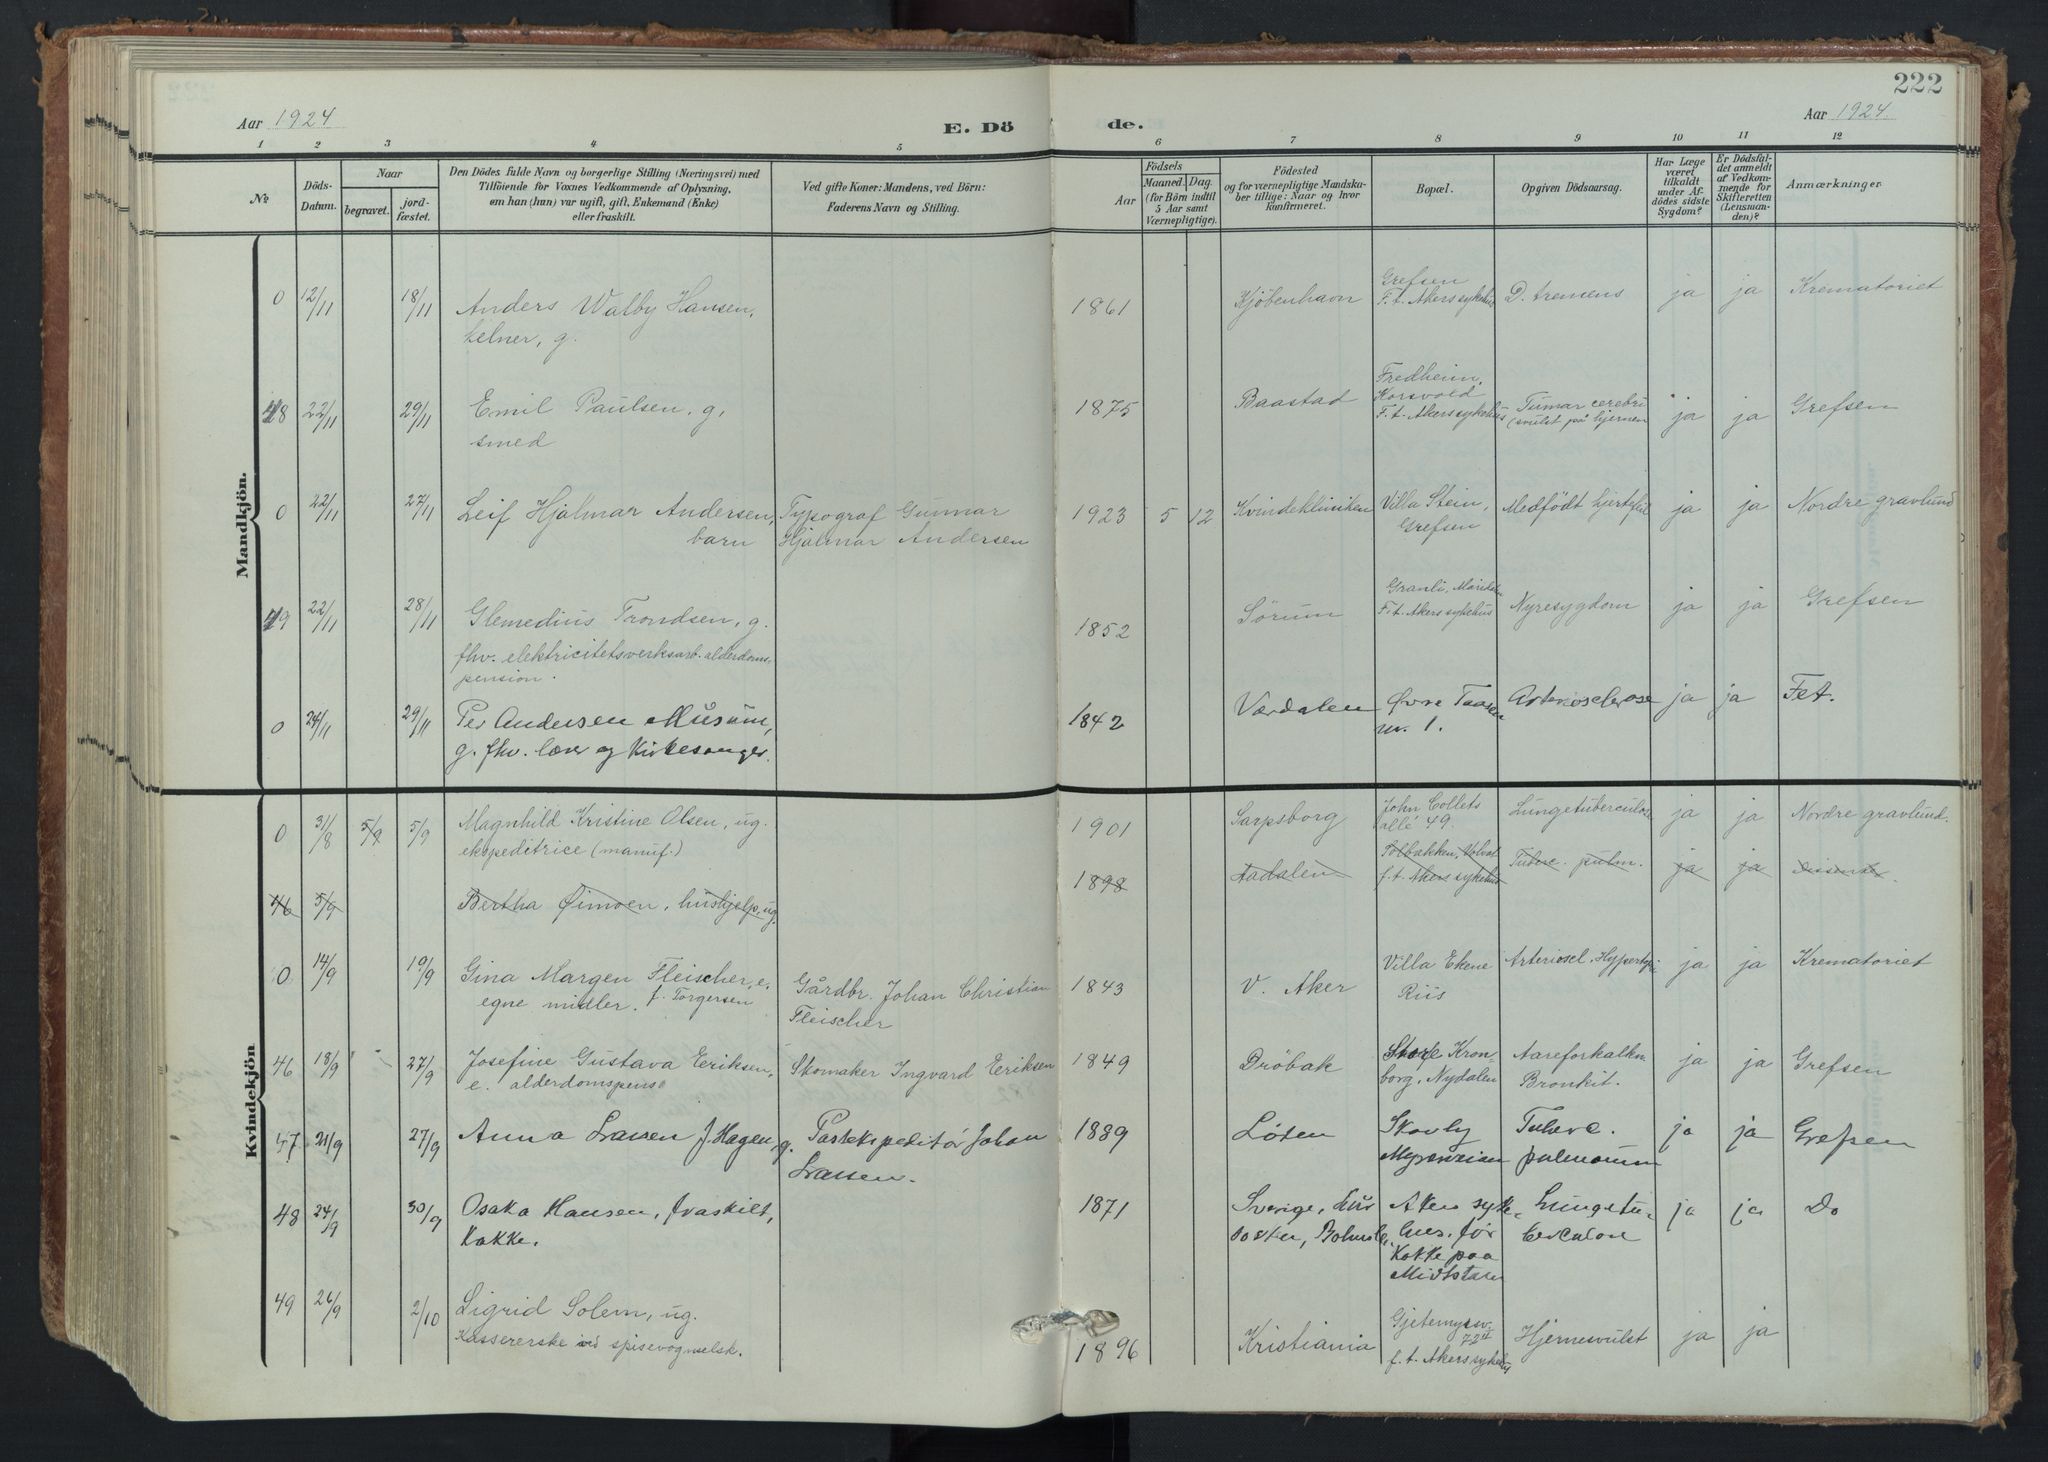 222
Aar 1924
E. Dö
de.
Aar 1924.
1 2 3 4 5 6 7 8 9 10 11 12
No.
Döds-
Datum.
Naar
begravet.
jord-
fæstet.
Den Dödes fulde Navn og borgerlige Stilling (Næringsvei) med
Tilföiende for Voxnes Vedkommende af Oplysning,
om han (hun) var ugift, gift, Enkemand (Enke)
eller fraskilt.
Ved gifte Koner: Mandens, ved Börn:
Faderens Navn og Stilling.
Aar
Födsels
Maaned. Dag.
(for Börn indtil
5 Aar samt
Værnepligtige).
Födested
og for værnepligtige Mandska-
ber tillige: Naar og hvor
konfirmeret.
Bopæl.
Opgiven Dödsaarsag.
Har Læge
været
tilkaldt
under Af-
dödes sidste
Sygdom?
Er Dödsfal-
det anmeldt
af Vedkom-
mende for
Skifteretten
(Lensman-
den)?
Anmærkninger
Mandkjön.
0 12/11 18/11 Anders Walby Hansen,
kelner, g.
1861 Kjöbenhavn
Grefsen
F. t. Akers sykehus
D. tremens ja ja Krematoriet
48 22/11 29/11 Emil Paulsen, g,
smed
1875 Baastad
Fredheim,
Korsvold
F. t. Akers sykehus
Tumar cerebri
(svulst på hjernen
ja ja Grefsen
0 22/11 27/11 Leif Hjalmar Andersen,
barn
Typograf Gunnar
Hjalmar Andersen
1923 5 12 Kvindekliniken
Villa Stein,
Grefsen
Medfödt hjertefeil ja ja Nordre gravlund
49 22/11 28/11 Glemedius Trondsen, g.
fhv. elektricitetsverksarb. alderdoms-
pension.
1852 Sörum
Granli, Maridalen
F. t. Akers sykehus
Nyresygdom ja ja Grefsen
0 24/11 29/11 Per Andersen Musum,
g. fhv. lærer og Kirkesanger.
1842 Værdalen
Øvre Taasen
nr. 1.
Arteriosclerose ja ja Fet.
Kvindekjön
0 31/8 5/9 5/9 Magnhild Kristine Olsen, ug.
ekspeditrice (manuf.)
1901 Sarpsborg
John Collets
allé 49.
Lungetuberculose ja ja Nordre gravlund.
46 5/9 Bertha Øimoen, hushjelp, ug.
1898 Aadalen
f. t. Akers sykehus
Tuberc. pulm. ja ja dissenter
0 14/9 19/9 Gina Margen Fleischer, e.
egne midler. f. Torgersen
Gårdbr. Johan Christian
Fleischer
1843 V. Aker
Villa Ekene
Riis
Arteriosel. Hypertofi ja ja Krematoriet
46 18/9 27/9 Josefine Gustava Eeriksen,
e. alderdomspens.
Skomaker Ingvard Eeriksen
1849 Dröbak
Store Kron-
borg, Nydalen
Aareforkalkn.
Bronkit.
ja ja Grefsen
47 21/9 27/9 Anna Larsen f. Hagen, g.
Postekspeditör Johan
Larsen.
1889 Löten
Skovly
Tuberc.
pulmonum
ja ja Grefsen
48 24/9 30/9 Osaka Hansen, fraskilt,
Kokke.
1871 Sverige,
Aker syke-
hus. før
Kokke paa
Midtstuen
Lungetu-
berculose
ja ja Do
49 26/9 2/10 Sigrid Solem, ug.
Kassererske ved spisevognselsk.
1896 Kristiania
Gjetemyrsv.
72 II
f. t. Akers sykehus
Hjernesvulst ja ja